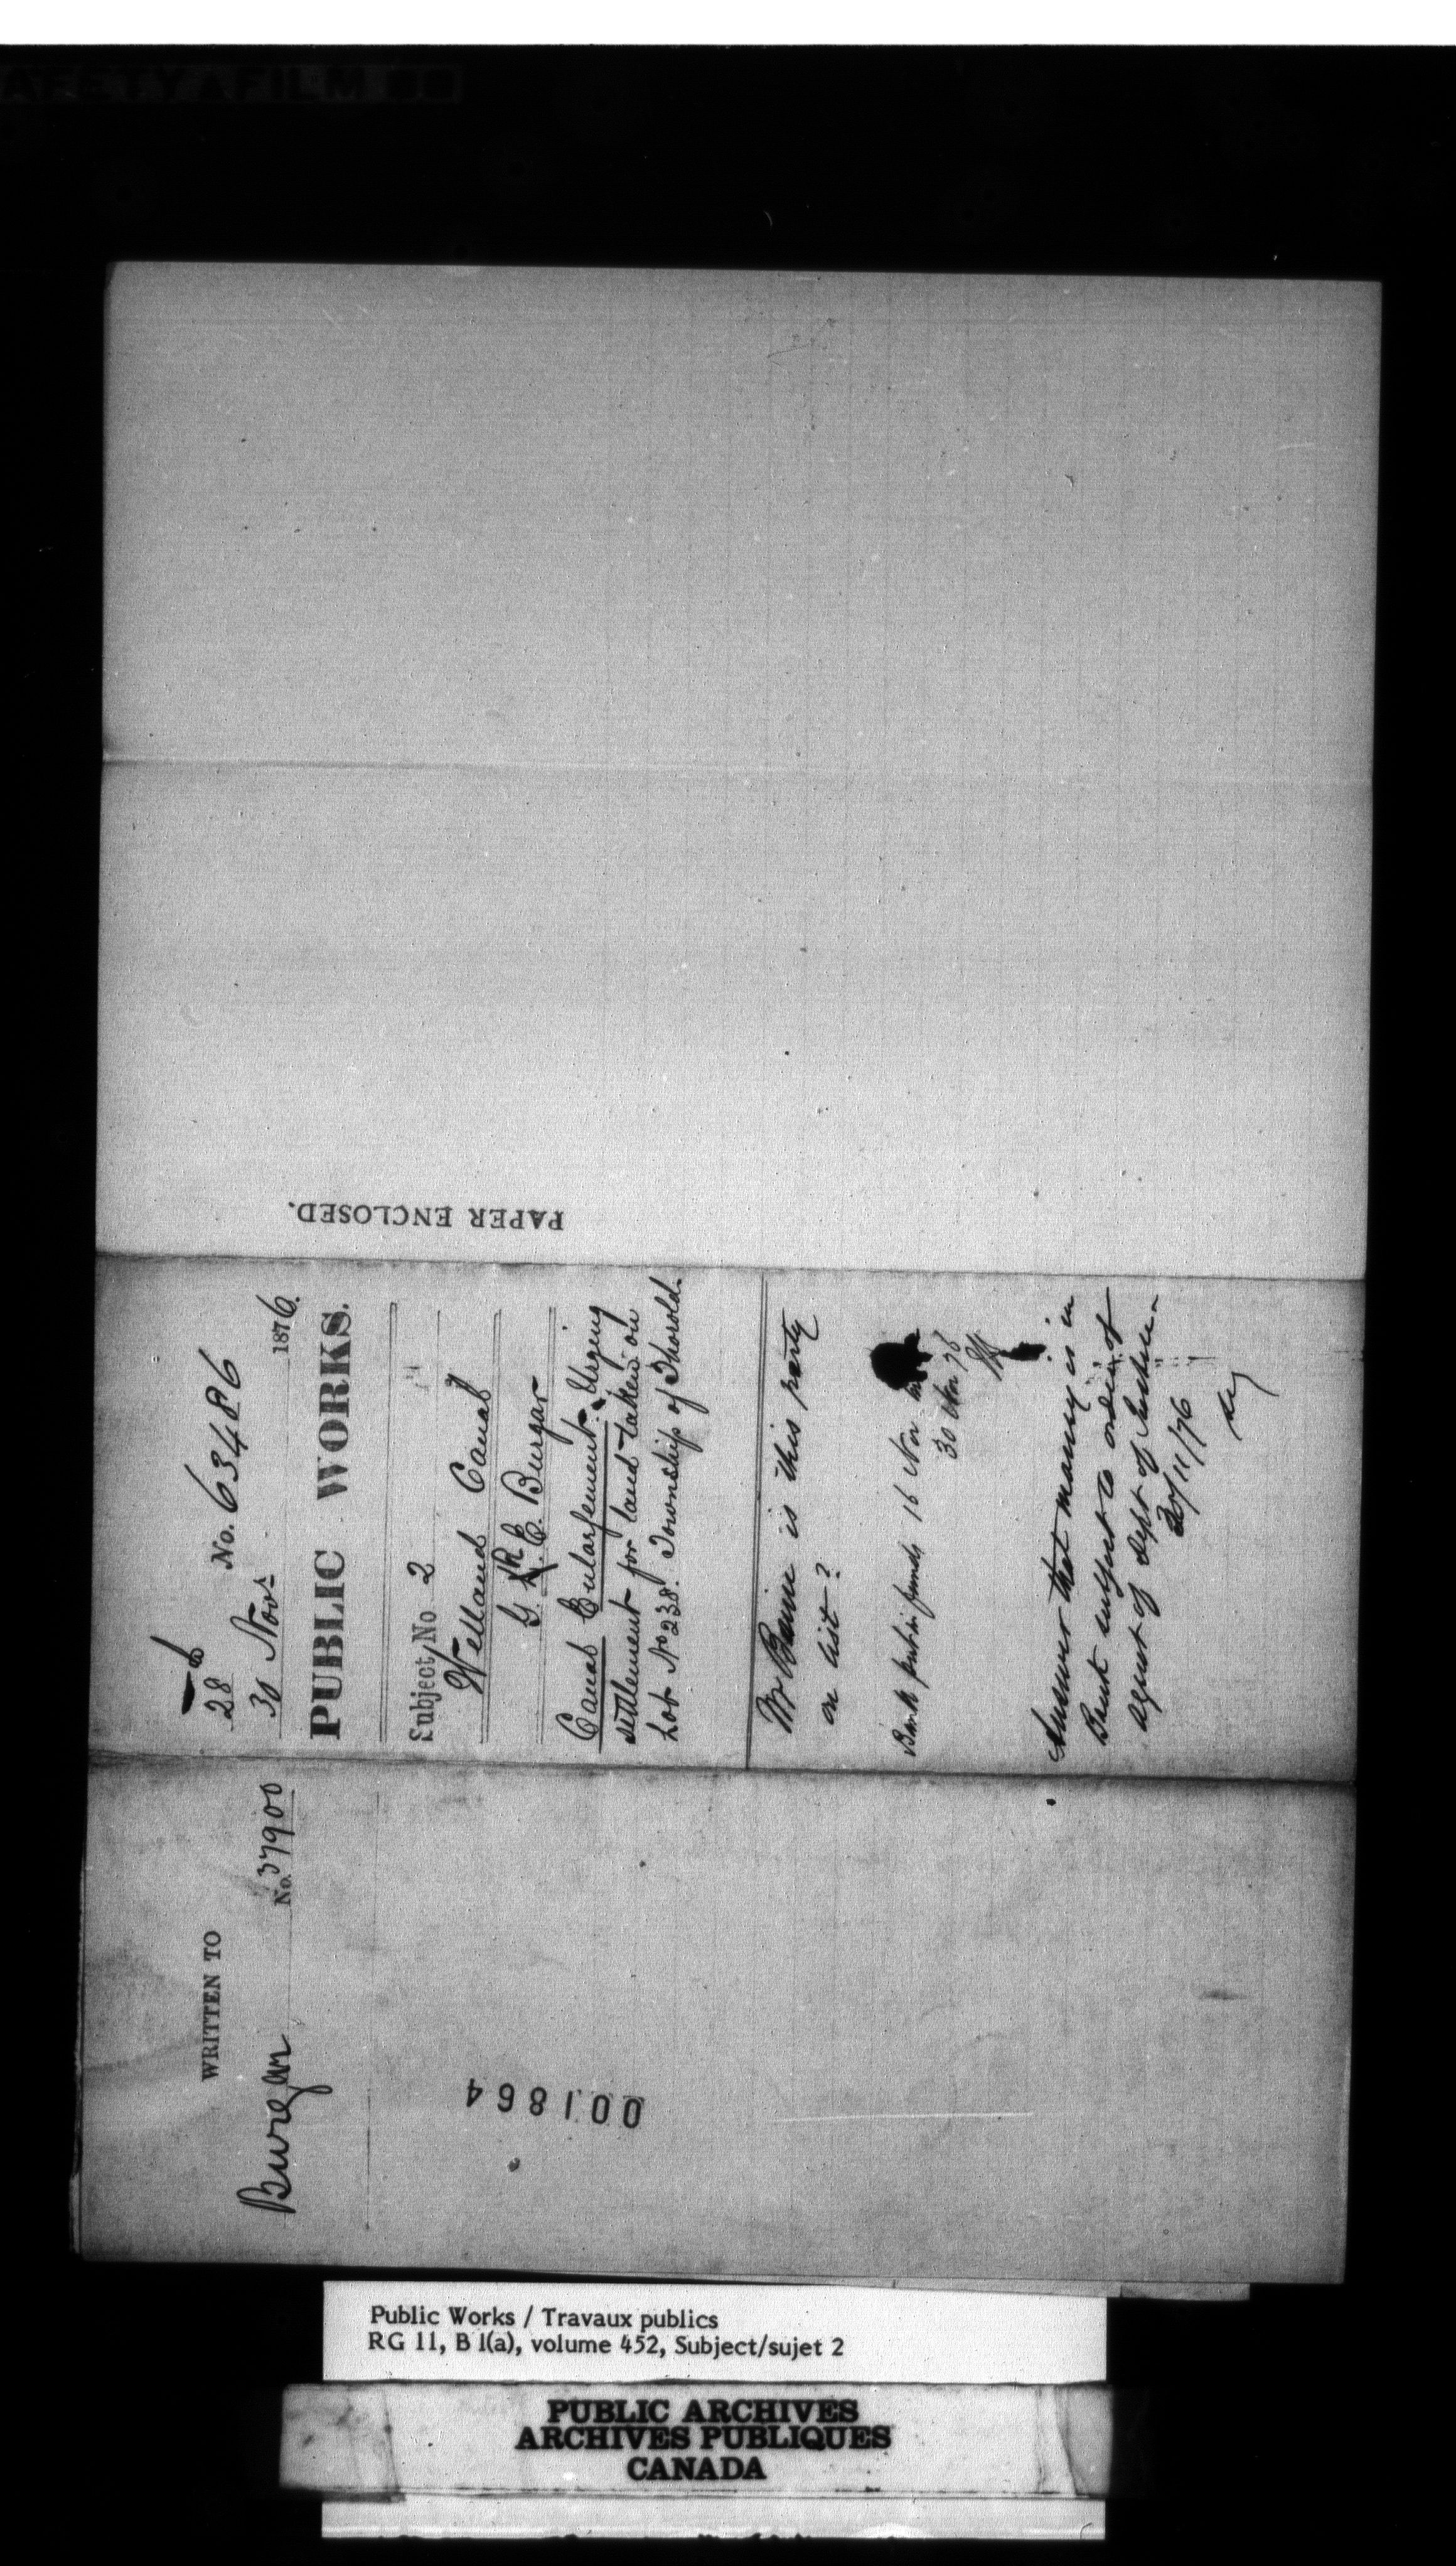 SAFETY FILM
PAPER ENCLOSED.
28
No. 63486
30 Novr 1876.
PUBLIC WORKS.
Subject, No 2
Welland Canal
G. R. E. Burgar
Canal Enlargement. Urging
settlement for land taken on
Lot No 238. Township of Thorold.
Mr Bain is this party
on list?
Bank put in funds 16 Nov
30 Nov 76
Answer that money is in
Bank subject to order of
agent of Dept of Justice
30/11/76
WRITTEN TO
Burgar No. 37900
001864
Public Works / Travaux publics
RG 11, B 1(a), volume 452, Subject/sujet 2
PUBLIC ARCHIVES
ARCHIVES PUBLIQUES
CANADA